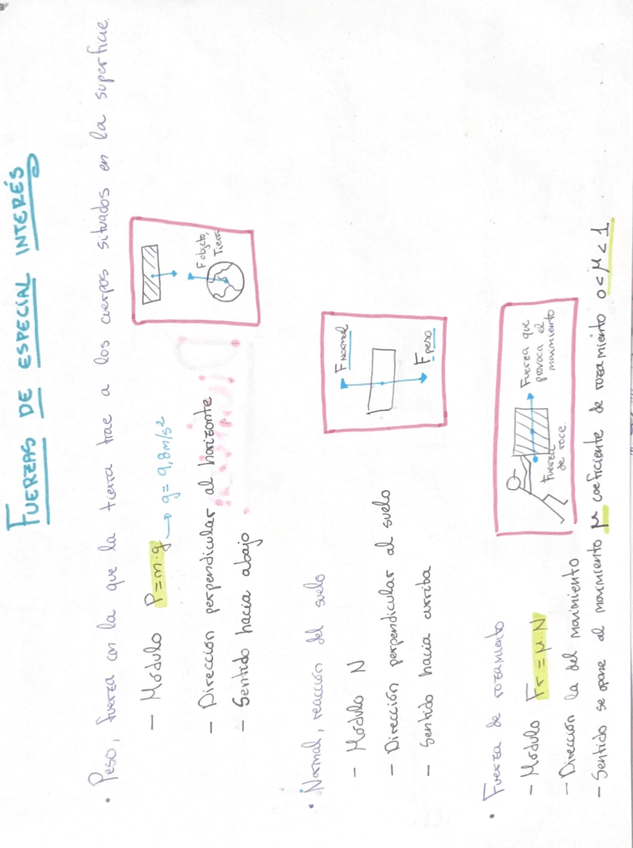 FUERZAS DE ESPECIAL INTERÉS
• Peso, fuerza con la que la tierra trae a los cuerpos situados en la superficie
- Módulo P=m·g → g=9,8m/s²
- Dirección perpendicular al horizonte
- Sentido hacia abajo
F objeto,
Tierra
• Normal, reacción del suelo
- Módulo N
- Dirección perpendicular al suelo
- Sentido hacia arriba
F Normal
F peso
• Fuerza de rozamiento
- Módulo Fr=μ·N
- Dirección la del movimiento
- Sentido se opone al movimiento μ coeficiente de rozamiento 0<μ<1
Fuerza
de roce
Fuerza que
provoca el
movimiento